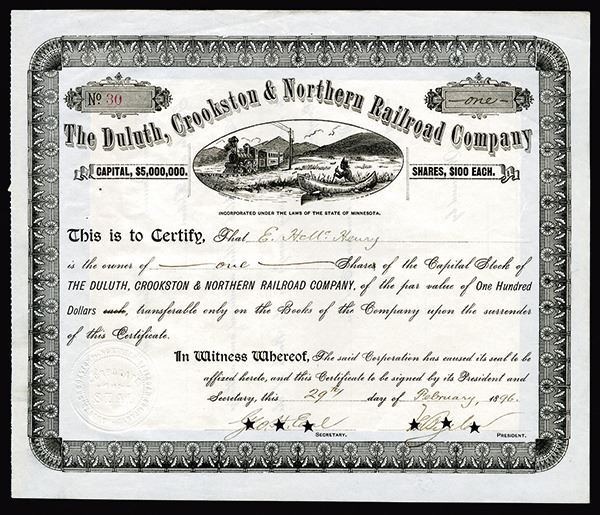 No 30
one
The Duluth, Crookston & Northern Railroad Company
CAPITAL, $5,000,000.
SHARES, $100 EACH.
INCORPORATED UNDER THE LAWS OF THE STATE OF MINNESOTA.
This is to Certify, That E. H. Mc Henry
is the owner of one Shares of the Capital Stock of
THE DULUTH, CROOKSTON & NORTHERN RAILROAD COMPANY, of the par value of One Hundred
Dollars each, transferable only on the Books of the Company upon the surrender
of this Certificate.
In Witness Whereof, The said Corporation has caused its seal to be
affixed hereto, and this Certificate to be signed by its President and
Secretary, this 29th day of February, 1896.
SECRETARY.
PRESIDENT.